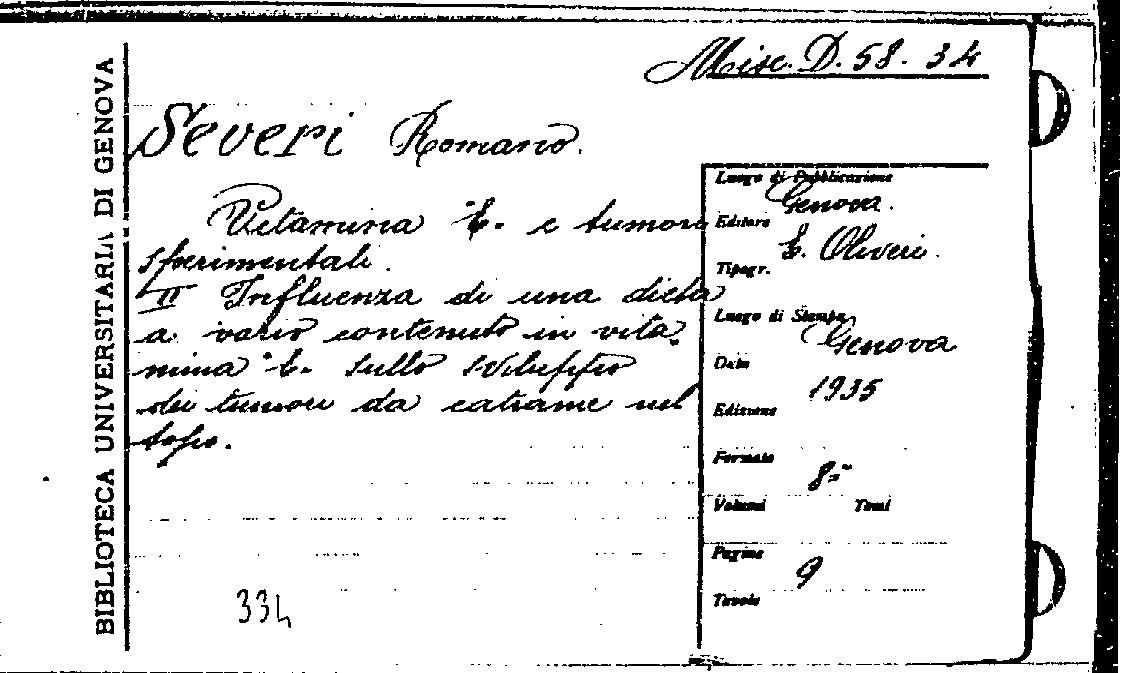 Misc. D. 58. 34
BIBLIOTECA UNIVERSITARIA DI GENOVA
Severi Romano.
Vitamina "E. e tumori
sperimentali.
II Influenza di una dieta
a vario contenuto in vita
mina "E. sullo sviluppo
dei tumori da catrame nel
topo.
334
Luogo di Pubblicazione
Genova.
Editore
E. Oliveri.
Tipogr.
Luogo di Stampa
Genova
Data
1935
Edizione
Formato
8=º
Volumi Tomi
Pagine
9
Tavole